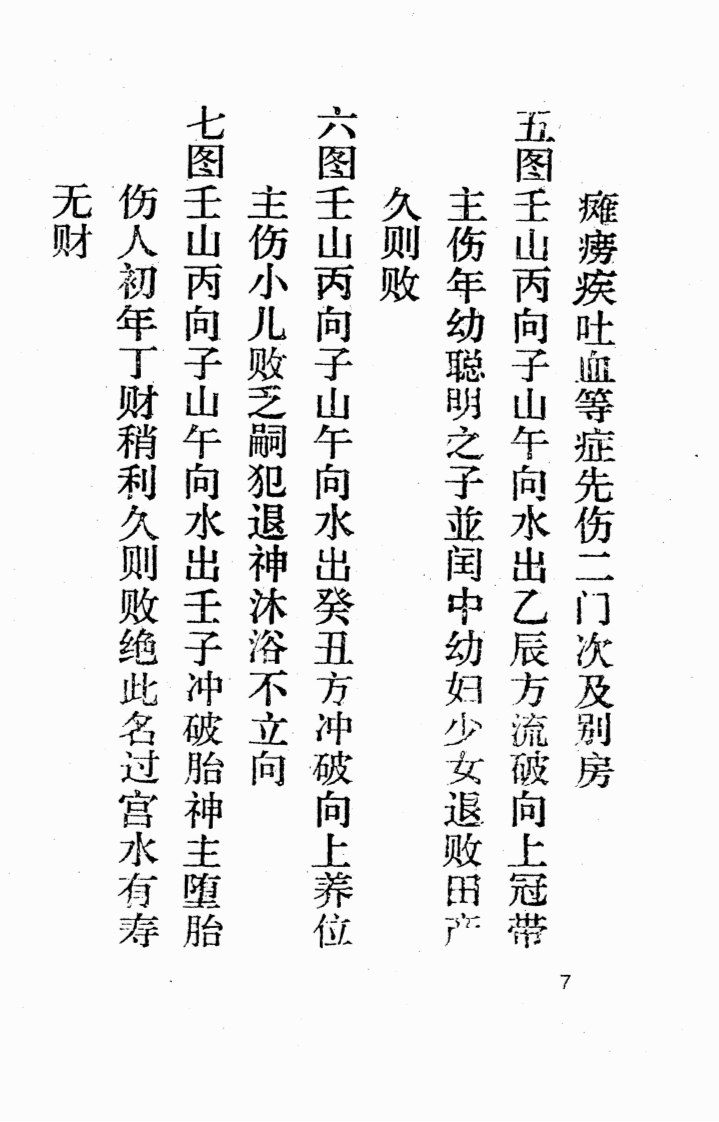 瘫痨疾吐血等症先伤二门次及别房
五图壬山丙向子山午向水出乙辰方流破向上冠带
主伤年幼聪明之子並闰中幼妇少女退败田产
久则败
六图壬山丙向子山午向水出癸丑方冲破向上养位
主伤小儿败乏嗣犯退神沐浴不立向
七图壬山丙向子山午向水出壬子冲破胎神主堕胎
伤人初年丁财稍利久则败绝此名过宫水有寿
无财
7